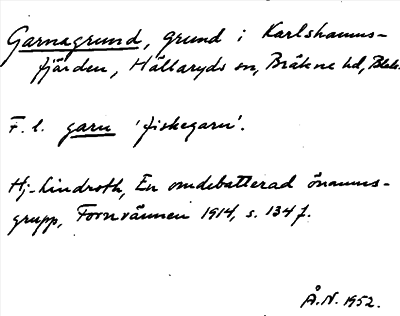 Garnagrund, grund i Karlshamns-
fjärden, Hällaryds sn, Bräkne hd, Blek.
F. l. garn 'fiskegarn'.
Hj. Lindroth, En omdebatterad önamns-
grupp, Fornvännen 1914, s. 134 f.
Å. N. 1952.